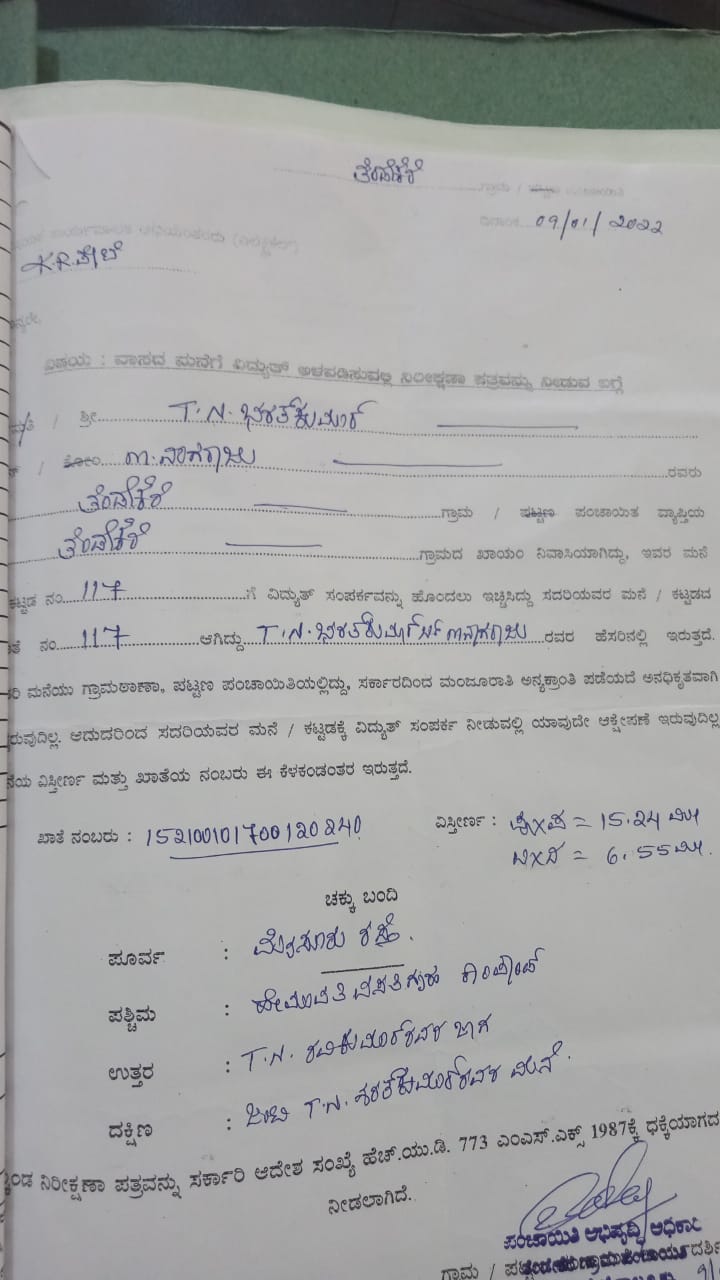 ತೆಂಡೇಕೆರೆ ಗ್ರಾಮ /
ದಿನಾಂಕ 09/01/2022
ಕೆ.ಆರ್.ಪೇಟೆ
ವಿಷಯ : ವಾಸದ ಮನೆಗೆ ವಿದ್ಯುತ್ ಅಳವಡಿಸುವಲ್ಲಿ ನಿರೀಕ್ಷಣಾ ಪತ್ರವನ್ನು ನೀಡುವ ಬಗ್ಗೆ
/ ಶ್ರೀ T.N. ಭರತ್‌ಕುಮಾರ್
/ ಕೋಂ ನಾಗರಾಜು ರವರು
ತೆಂಡೇಕೆರೆ ಗ್ರಾಮ / ಪಟ್ಟಣ ಪಂಚಾಯಿತಿ ವ್ಯಾಪ್ತಿಯ
ತೆಂಡೇಕೆರೆ ಗ್ರಾಮದ ಖಾಯಂ ನಿವಾಸಿಯಾಗಿದ್ದು, ಇವರ ಮನೆ
ಕಟ್ಟಡ ನಂ. 117 ಗೆ ವಿದ್ಯುತ್ ಸಂಪರ್ಕವನ್ನು ಹೊಂದಲು ಇಚ್ಚಿಸಿದ್ದು ಸದರಿಯವರ ಮನೆ / ಕಟ್ಟಡದ
ನಂ 117 ಆಗಿದ್ದು T.N. ಭರತ್‌ಕುಮಾರ್ ನಾಗರಾಜು ರವರ ಹೆಸರಿನಲ್ಲಿ ಇರುತ್ತದೆ.
ಮನೆಯು ಗ್ರಾಮಠಾಣಾ, ಪಟ್ಟಣ ಪಂಚಾಯಿತಿಯಲ್ಲಿದ್ದು, ಸರ್ಕಾರದಿಂದ ಮಂಜೂರಾತಿ ಅನ್ಯಕ್ರಾಂತಿ ಪಡೆಯದೆ ಅನಧಿಕೃತವಾಗಿ
ರುವುದಿಲ್ಲ. ಆದುದರಿಂದ ಸದರಿಯವರ ಮನೆ / ಕಟ್ಟಡಕ್ಕೆ ವಿದ್ಯುತ್ ಸಂಪರ್ಕ ನೀಡುವಲ್ಲಿ ಯಾವುದೇ ಆಕ್ಷೇಪಣೆ ಇರುವುದಿಲ್ಲ
ನೆಯ ವಿಸ್ತೀರ್ಣ ಮತ್ತು ಖಾತೆಯ ನಂಬರು ಈ ಕೆಳಕಂಡಂತರ ಇರುತ್ತದೆ.
ಖಾತೆ ನಂಬರು : 152100101700120240 ವಿಸ್ತೀರ್ಣ : ಪೂXಪ = 15.24 ಮೀ
ಉXದ = 6.55 ಮೀ.
ಚಕ್ಕು ಬಂದಿ
ಪೂರ್ವ : ಮೈಸೂರು ರಸ್ತೆ.
ಪಶ್ಚಿಮ : ಹೇಮಾವತಿ ವಸತಿಗೃಹ ಕಾಂಪೌಂಡ್
ಉತ್ತರ : T.N. ರವಿಕುಮಾರ್‌ರವರ ಜಾಗ
ದಕ್ಷಿಣ : T.N. ಶರತ್‌ಕುಮಾರ್‌ರವರ ಮನೆ.
ನಿರೀಕ್ಷಣಾ ಪತ್ರವನ್ನು ಸರ್ಕಾರಿ ಆದೇಶ ಸಂಖ್ಯೆ ಹೆಚ್.ಯು.ಡಿ. 773 ಎಂಎಸ್.ಎಕ್ಸ್ 1987ಕ್ಕೆ ಧಕ್ಕೆಯಾಗದ
ನೀಡಲಾಗಿದೆ.
ಪಂಚಾಯಿತಿ ಅಭಿವೃದ್ಧಿ ಅಧಿಕಾರಿ
ಗ್ರಾಮ /